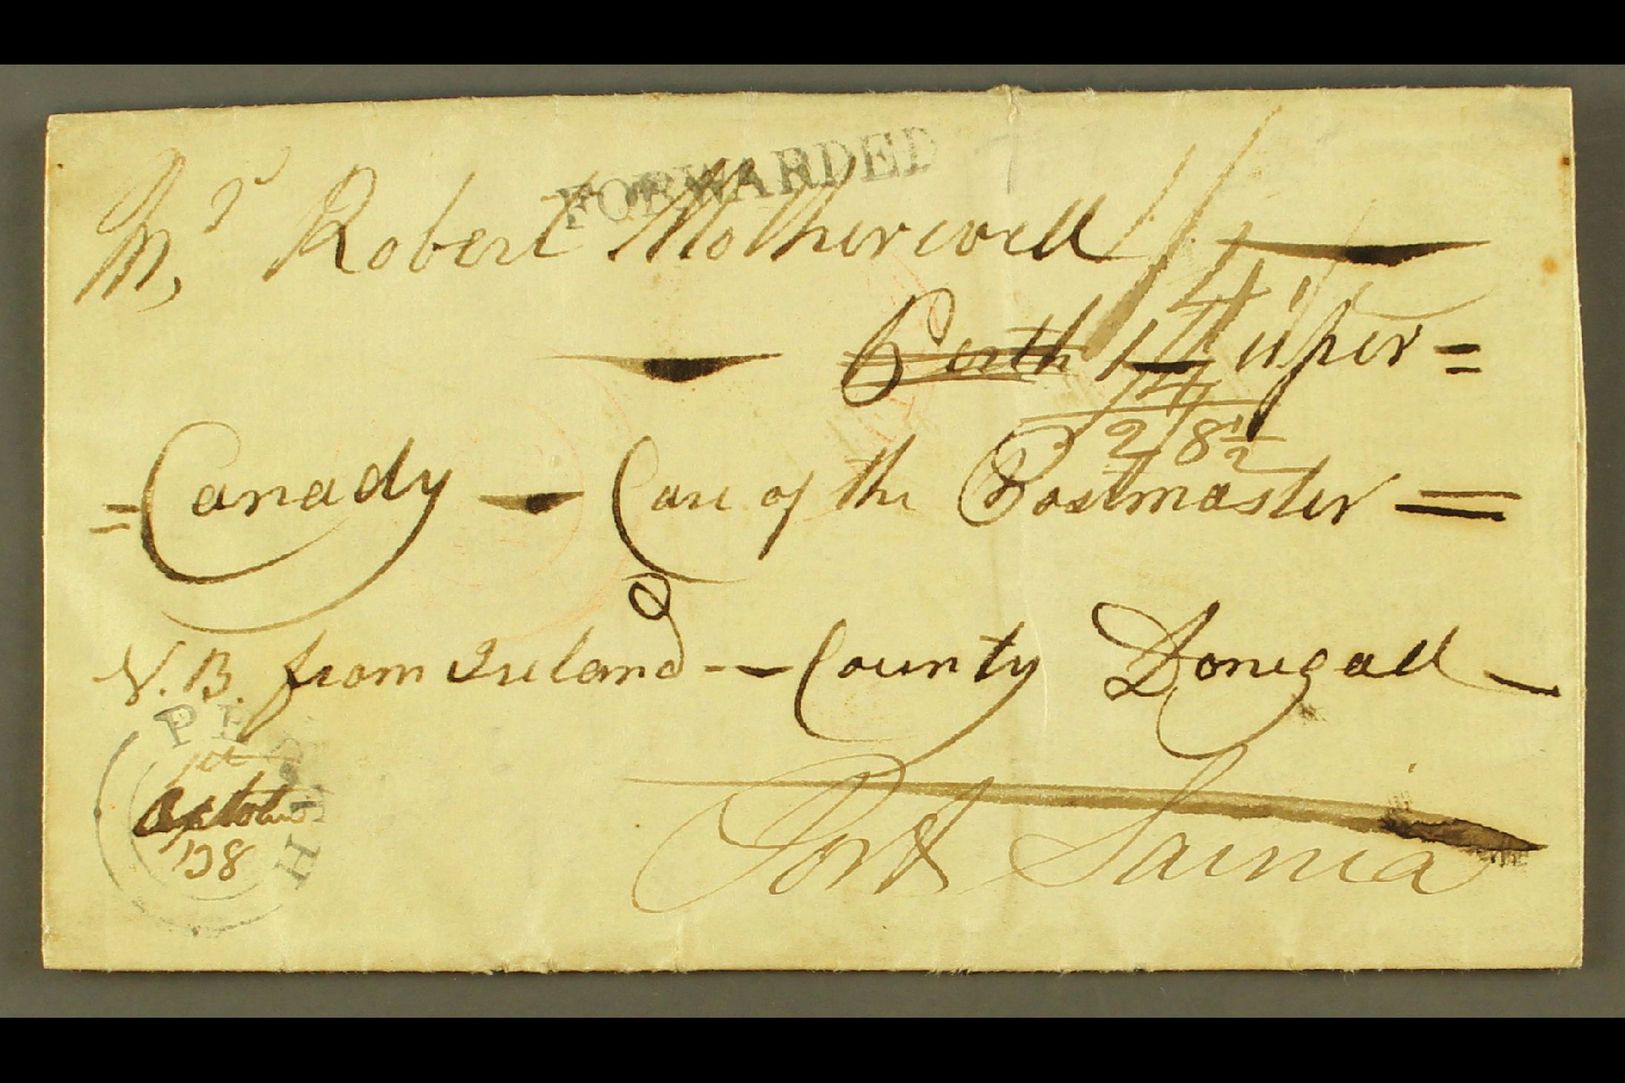 FORWARDED
Mr, Robert Motherwell
Perth Uper =
= Canady - Care of the Postmaster =
2/8½
N.B. from Ireland -- County Donegall -
Port Sarnia
PERTH